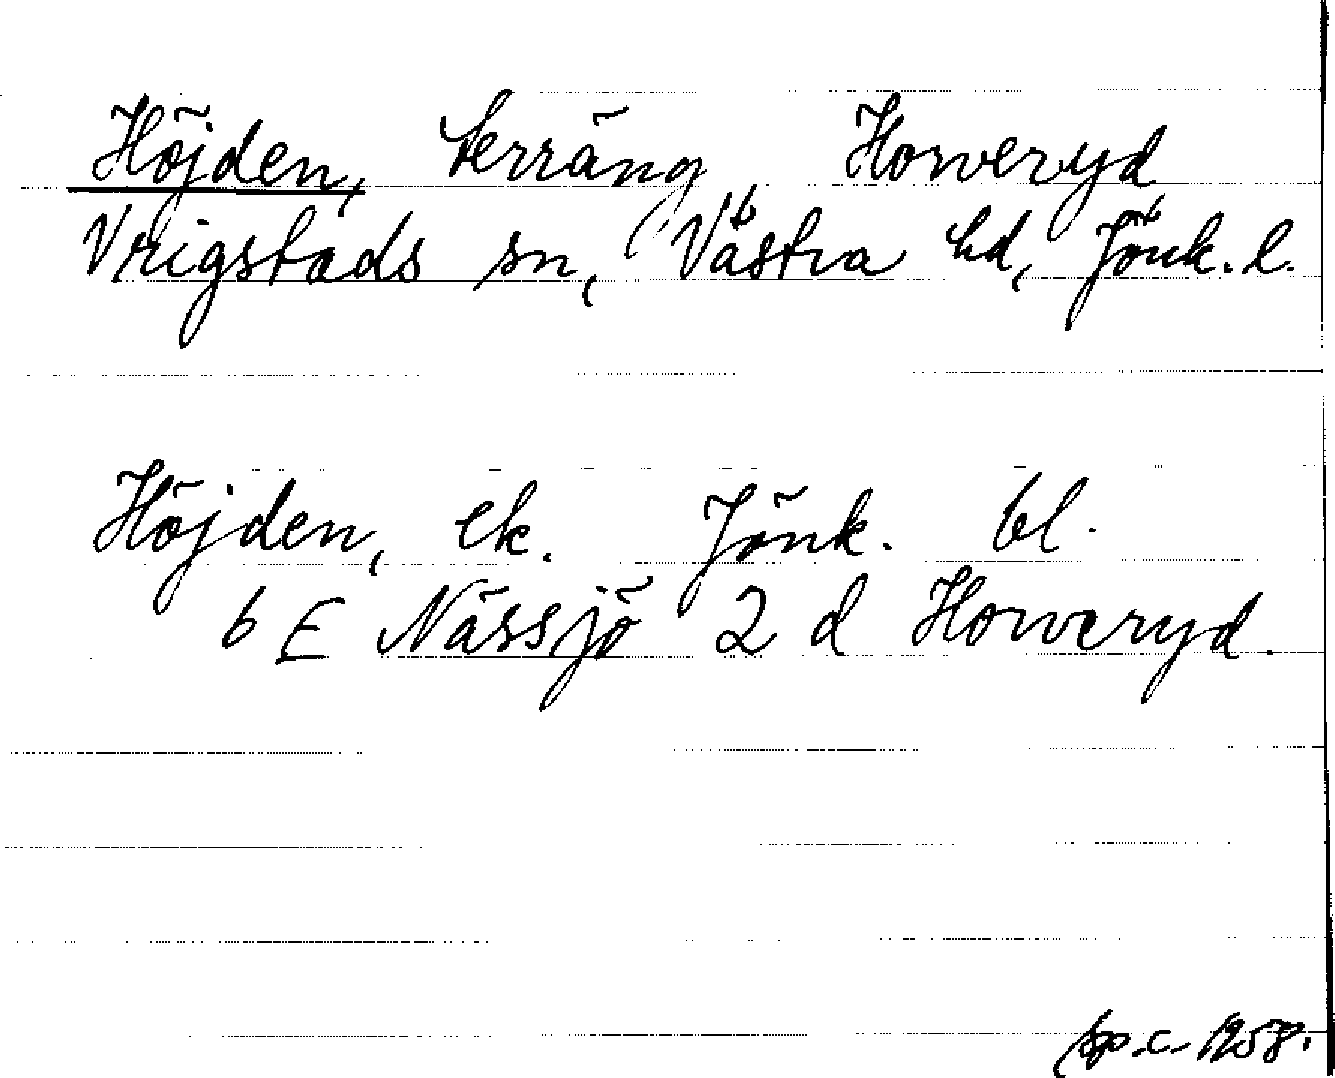 Höjden, terräng Horveryd
Vrigstads sn, Västra hd, Jönk. l.
Höjden, ek. Jönk. bl.
6 E Nässjö 2 d Horveryd.
sp.c. 1958.